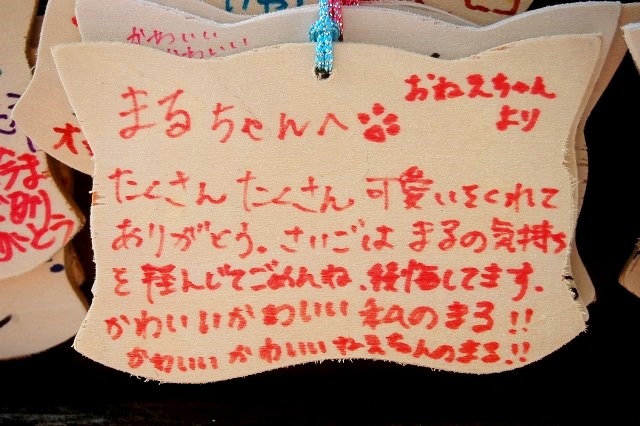 かわいい
かわいい
まるちゃんへ
おねえちゃん
より
たくさんたくさん可愛いをくれて
ありがとう。さいごはまるの気持ち
を軽んじてごめんね、後悔してます。
かわいいかわいい私のまる!!
かわいいかわいいねえちんのまる!!